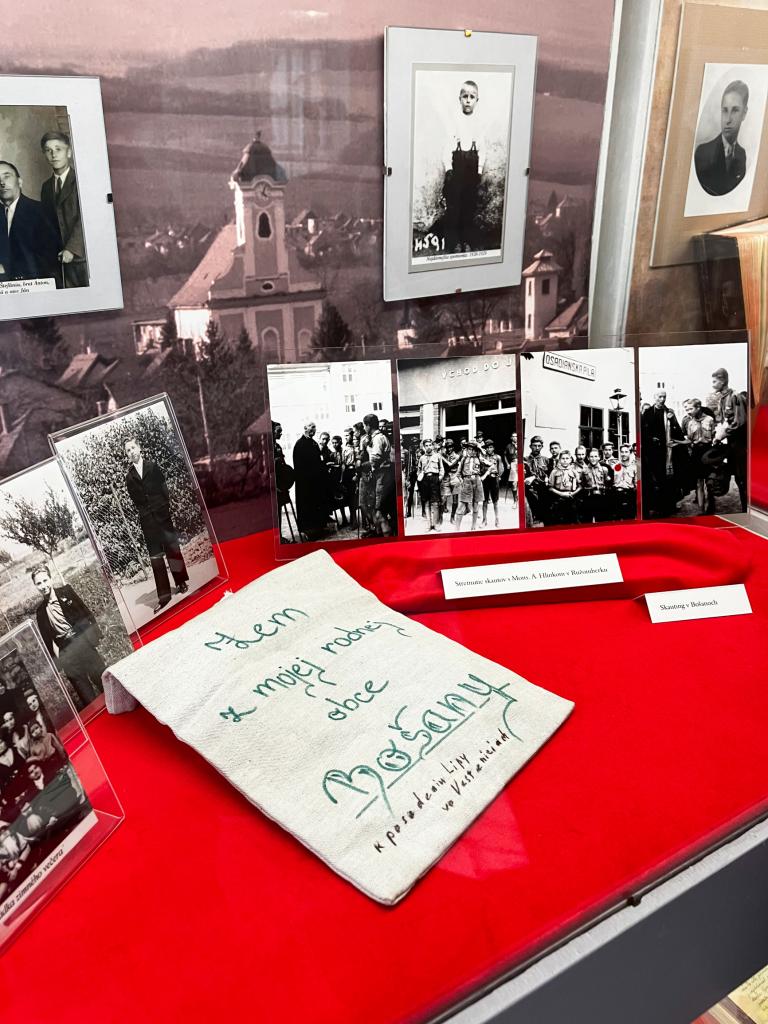 brat Anton,
a otec Ján
H591
Najdávnejšia spomienka: 1928-1929
VCHOD DO
OSADIANSKA PLÁ
Stretnutie skautov s Mons. A. Hlinkom v Ružomberku
Skauting v Bošanoch
Zem
z mojej rodnej
obce
Bošany
k posadeniu Lipy
vo Vesteniciach
zimného večera